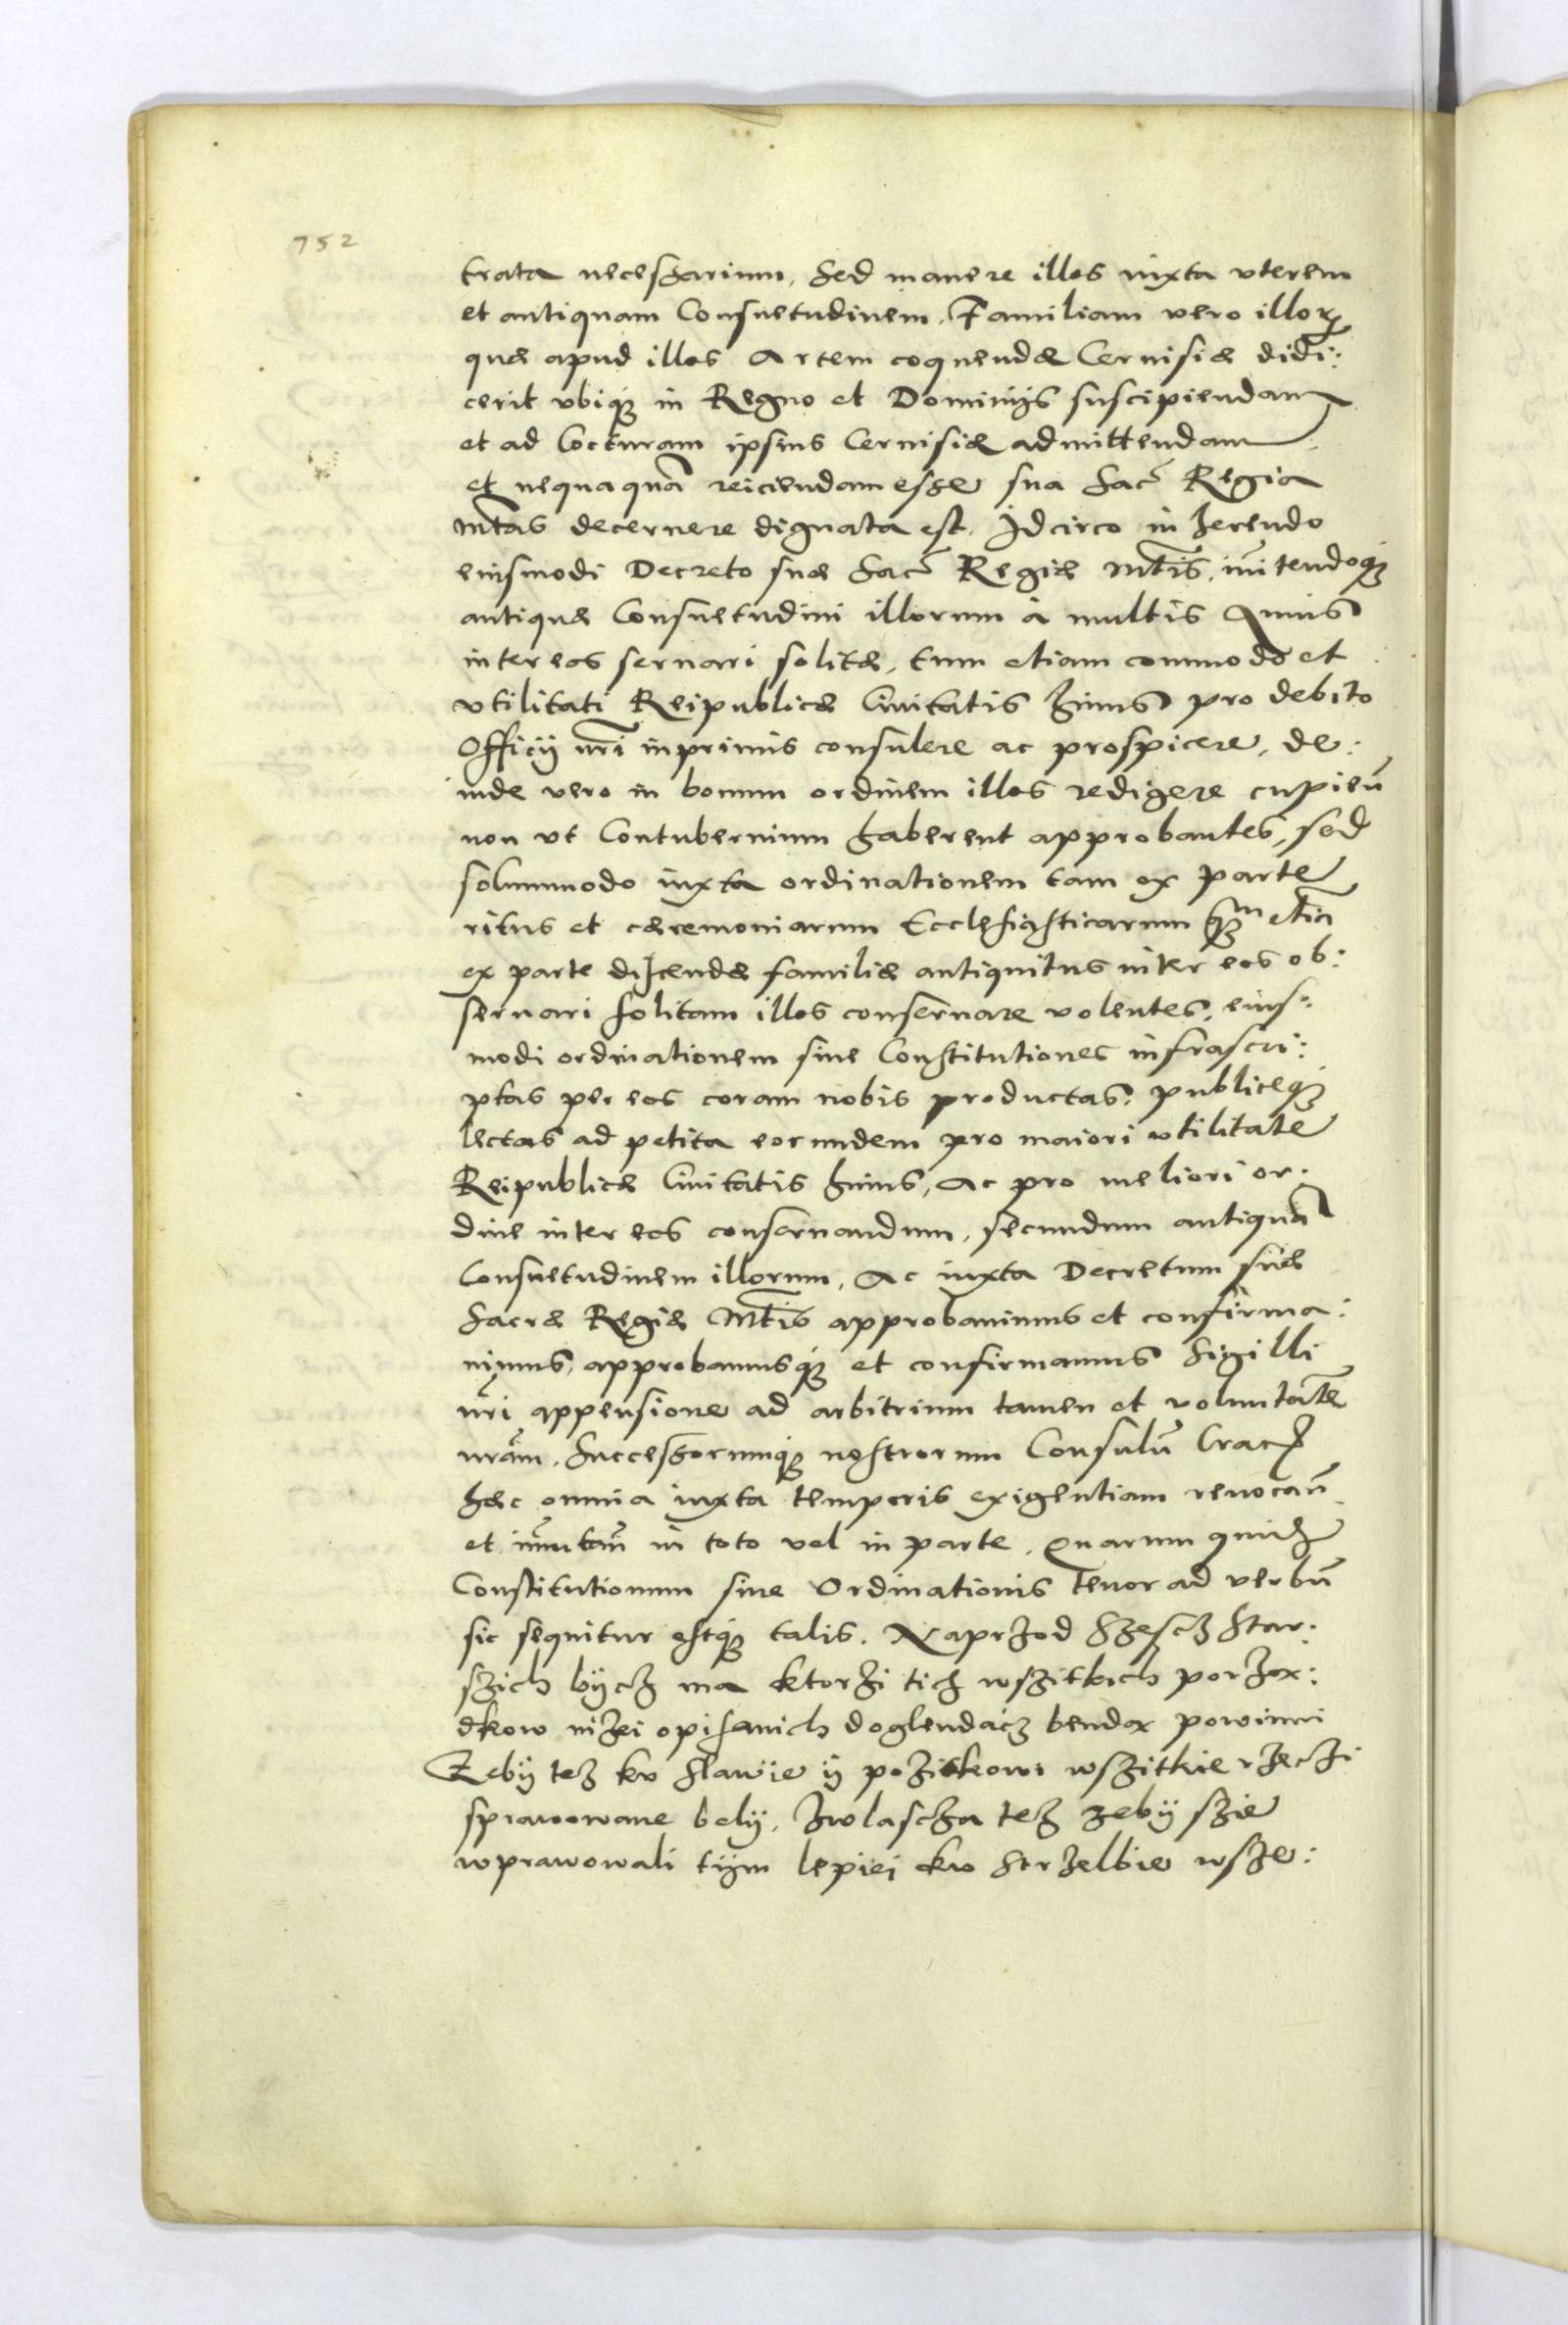 752
trata necessarium. Sed manere illos iuxta vterem
et antiquam Consuetudinem. Familiam vero illorꝝ
quæ apud illos Artem coquendæ Ceruisiæ didi:
cerit vbiqꝫ in Regno et Dominijs suscipiendam
et ad Cocturam ipsius Ceruisiæ admittendam
et nequaquã reiciendam esse sua Sac̃ Regia
Mt̃as decernere dignata est. Idcirco in herendo
eiusmodi Decreto suæ Sac̃ Regiæ Mt̃is, iñitendoqꝫ
antiquæ Consuetudini illorum à multis Annis
inter eos seruari solitæ, tum etiam commodo et
vtilitati Reipublicæ Ciuitatis huius pro debito
Officij nr̃i inprimis consulere ac prospicere, de:
inde vero in bonum ordinem illos redigere cupień
non vt Contubernium haberent approbantes, sed
solummodo iuxta ordinationem tam ex parte
ritus et cæremoniarum Ecclesiasticarum qꝫm etiã
ex parte discendæ familiæ antiquitus inter eos ob:
seruari solitam illos conseruare volentes, eius:
modi ordinationem siue Constitutiones infrascri:
ptas per eos coram nobis productas, publiceqꝫ
lectas ad petita eorundem pro maiori vtilitate
Reipublicæ Ciuitatis huius, Ac pro meliori or:
dine inter eos conseruandum, secundum antiquã
Consuetudinem illorum, Ac iuxta Decretum suæ
Sacræ Regiæ Mt̃is approbauimus et confirma:
uimus, approbamusqꝫ et confirmamus Sigilli
nr̃i appensione ad arbitrium tamen et voluntatẽ
nrãm, Successorumqꝫ nostrorum Consulũ Crac̃
hæc omnia iuxta temporis exigentiam reuocań
et im̃utań in toto vel in parte. Quarum quidẽ
Constitutionum siue Ordinationis tenor ad verbũ
sic sequitur estqꝫ talis. Naprzod Szescz Star:
szich bÿcz ma ktorzi tich wszitkich porzax:
dkow nizei opisanich doglendacz bendax powinni
Zebÿ tez kv slawie ÿ pozitkowi wszitkie rzeczi
sprawowane belÿ. Zwlascza tez zebÿ szie
wprawowali tÿm lepiei kw Strzelbie wsze: